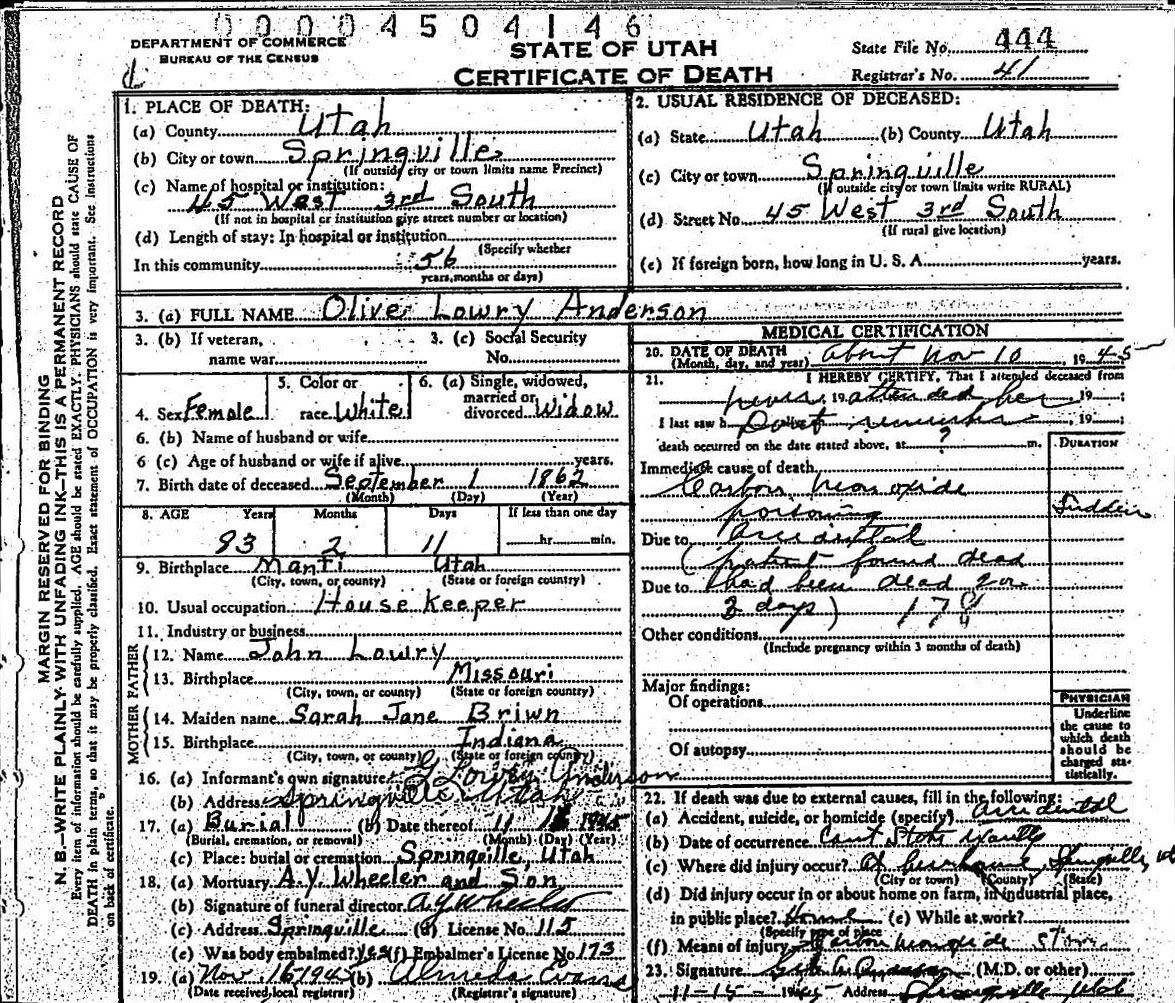 0 0 0 4 5 0 4 1 4 6
DEPARTMENT OF COMMERCE
BUREAU OF THE CENSUS
STATE OF UTAH
CERTIFICATE OF DEATH
State File No. 444
Registrar's No. 41
MARGIN RESERVED FOR BINDING
N. B.—WRITE PLAINLY WITH UNFADING INK—THIS IS A PERMANENT RECORD
Every item of information should be carefully supplied. AGE should be stated EXACTLY. PHYSICIANS should state CAUSE OF
DEATH in plain terms, so that it may be properly classified. Exact statement of OCCUPATION is very important. See instructions
on back of certificate.
1. PLACE OF DEATH:
(a) County Utah
(b) City or town Springville
(If outside city or town limits name Precinct)
(c) Name of hospital or institution:
45 West 3rd South
(If not in hospital or institution give street number or location)
(d) Length of stay: In hospital or institution
(Specify whether
In this community 56
years, months or days)
2. USUAL RESIDENCE OF DECEASED:
(a) State Utah (b) County Utah
(c) City or town Springville
(If outside city or town limits write RURAL)
(d) Street No. 45 West 3rd South
(If rural give location)
(e) If foreign born, how long in U. S. A. years.
3. (a) FULL NAME Olive Lowry Anderson
3. (b) If veteran, 3. (c) Social Security
name war No.
4. Sex Female 5. Color or race White 6. (a) Single, widowed, married or divorced Widow
6. (b) Name of husband or wife
6 (c) Age of husband or wife if alive years.
7. Birth date of deceased September 1 1862
(Month) (Day) (Year)
8. AGE Years Months Days If less than one day
83 2 11 hr. min.
9. Birthplace Manti Utah
(City, town, or county) (State or foreign country)
10. Usual occupation House Keeper
11. Industry or business
FATHER
12. Name John Lowry
13. Birthplace Missouri
(City, town, or county) (State or foreign country)
MOTHER
14. Maiden name Sarah Jane Briwn
15. Birthplace Indiana
(City, town, or county) (State or foreign country)
16. (a) Informant's own signature Lowry Anderson
(b) Address Springville Utah
17. (a) Burial (b) Date thereof 11 1945
(Burial, cremation, or removal) (Month) (Day) (Year)
(c) Place: burial or cremation Springville, Utah
18. (a) Mortuary A.Y. Wheeler and Son
(b) Signature of funeral director A Y Wheeler
(c) Address Springville (d) License No. 115
(e) Was body embalmed? yes (f) Embalmer's License No. 173
19. (a) Nov. 16 1945 (b) Almeda Evans
(Date received local registrar) (Registrar's signature)
MEDICAL CERTIFICATION
20. DATE OF DEATH About Nov 10 1945
(Month, day, and year)
21. I HEREBY CERTIFY, That I attended deceased from
never, 19 attended her 19 ;
I last saw h Don't remember, 19 ;
death occurred on the date stated above, at ? m.
DURATION
Immediate cause of death
Carbon monoxide
poisoning Sudden
Due to Accidental
(patient found dead
Due to had been dead 2 or
3 days) 178
Other conditions
(Include pregnancy within 3 months of death)
Major findings:
Of operations
Of autopsy
PHYSICIAN
Underline
the cause to
which death
should be
charged sta-
tistically.
22. If death was due to external causes, fill in the following:
(a) Accident, suicide, or homicide (specify) Accidental
(b) Date of occurrence Cant State
(c) Where did injury occur? At Springville,
(City or town) (County) (State)
(d) Did injury occur in or about home on farm, in industrial place,
in public place? Home (e) While at work?
(Specify type of place
(f) Means of injury Carbon monoxide
23. Signature (M.D. or other)
11-15-1945 Address Springville Utah